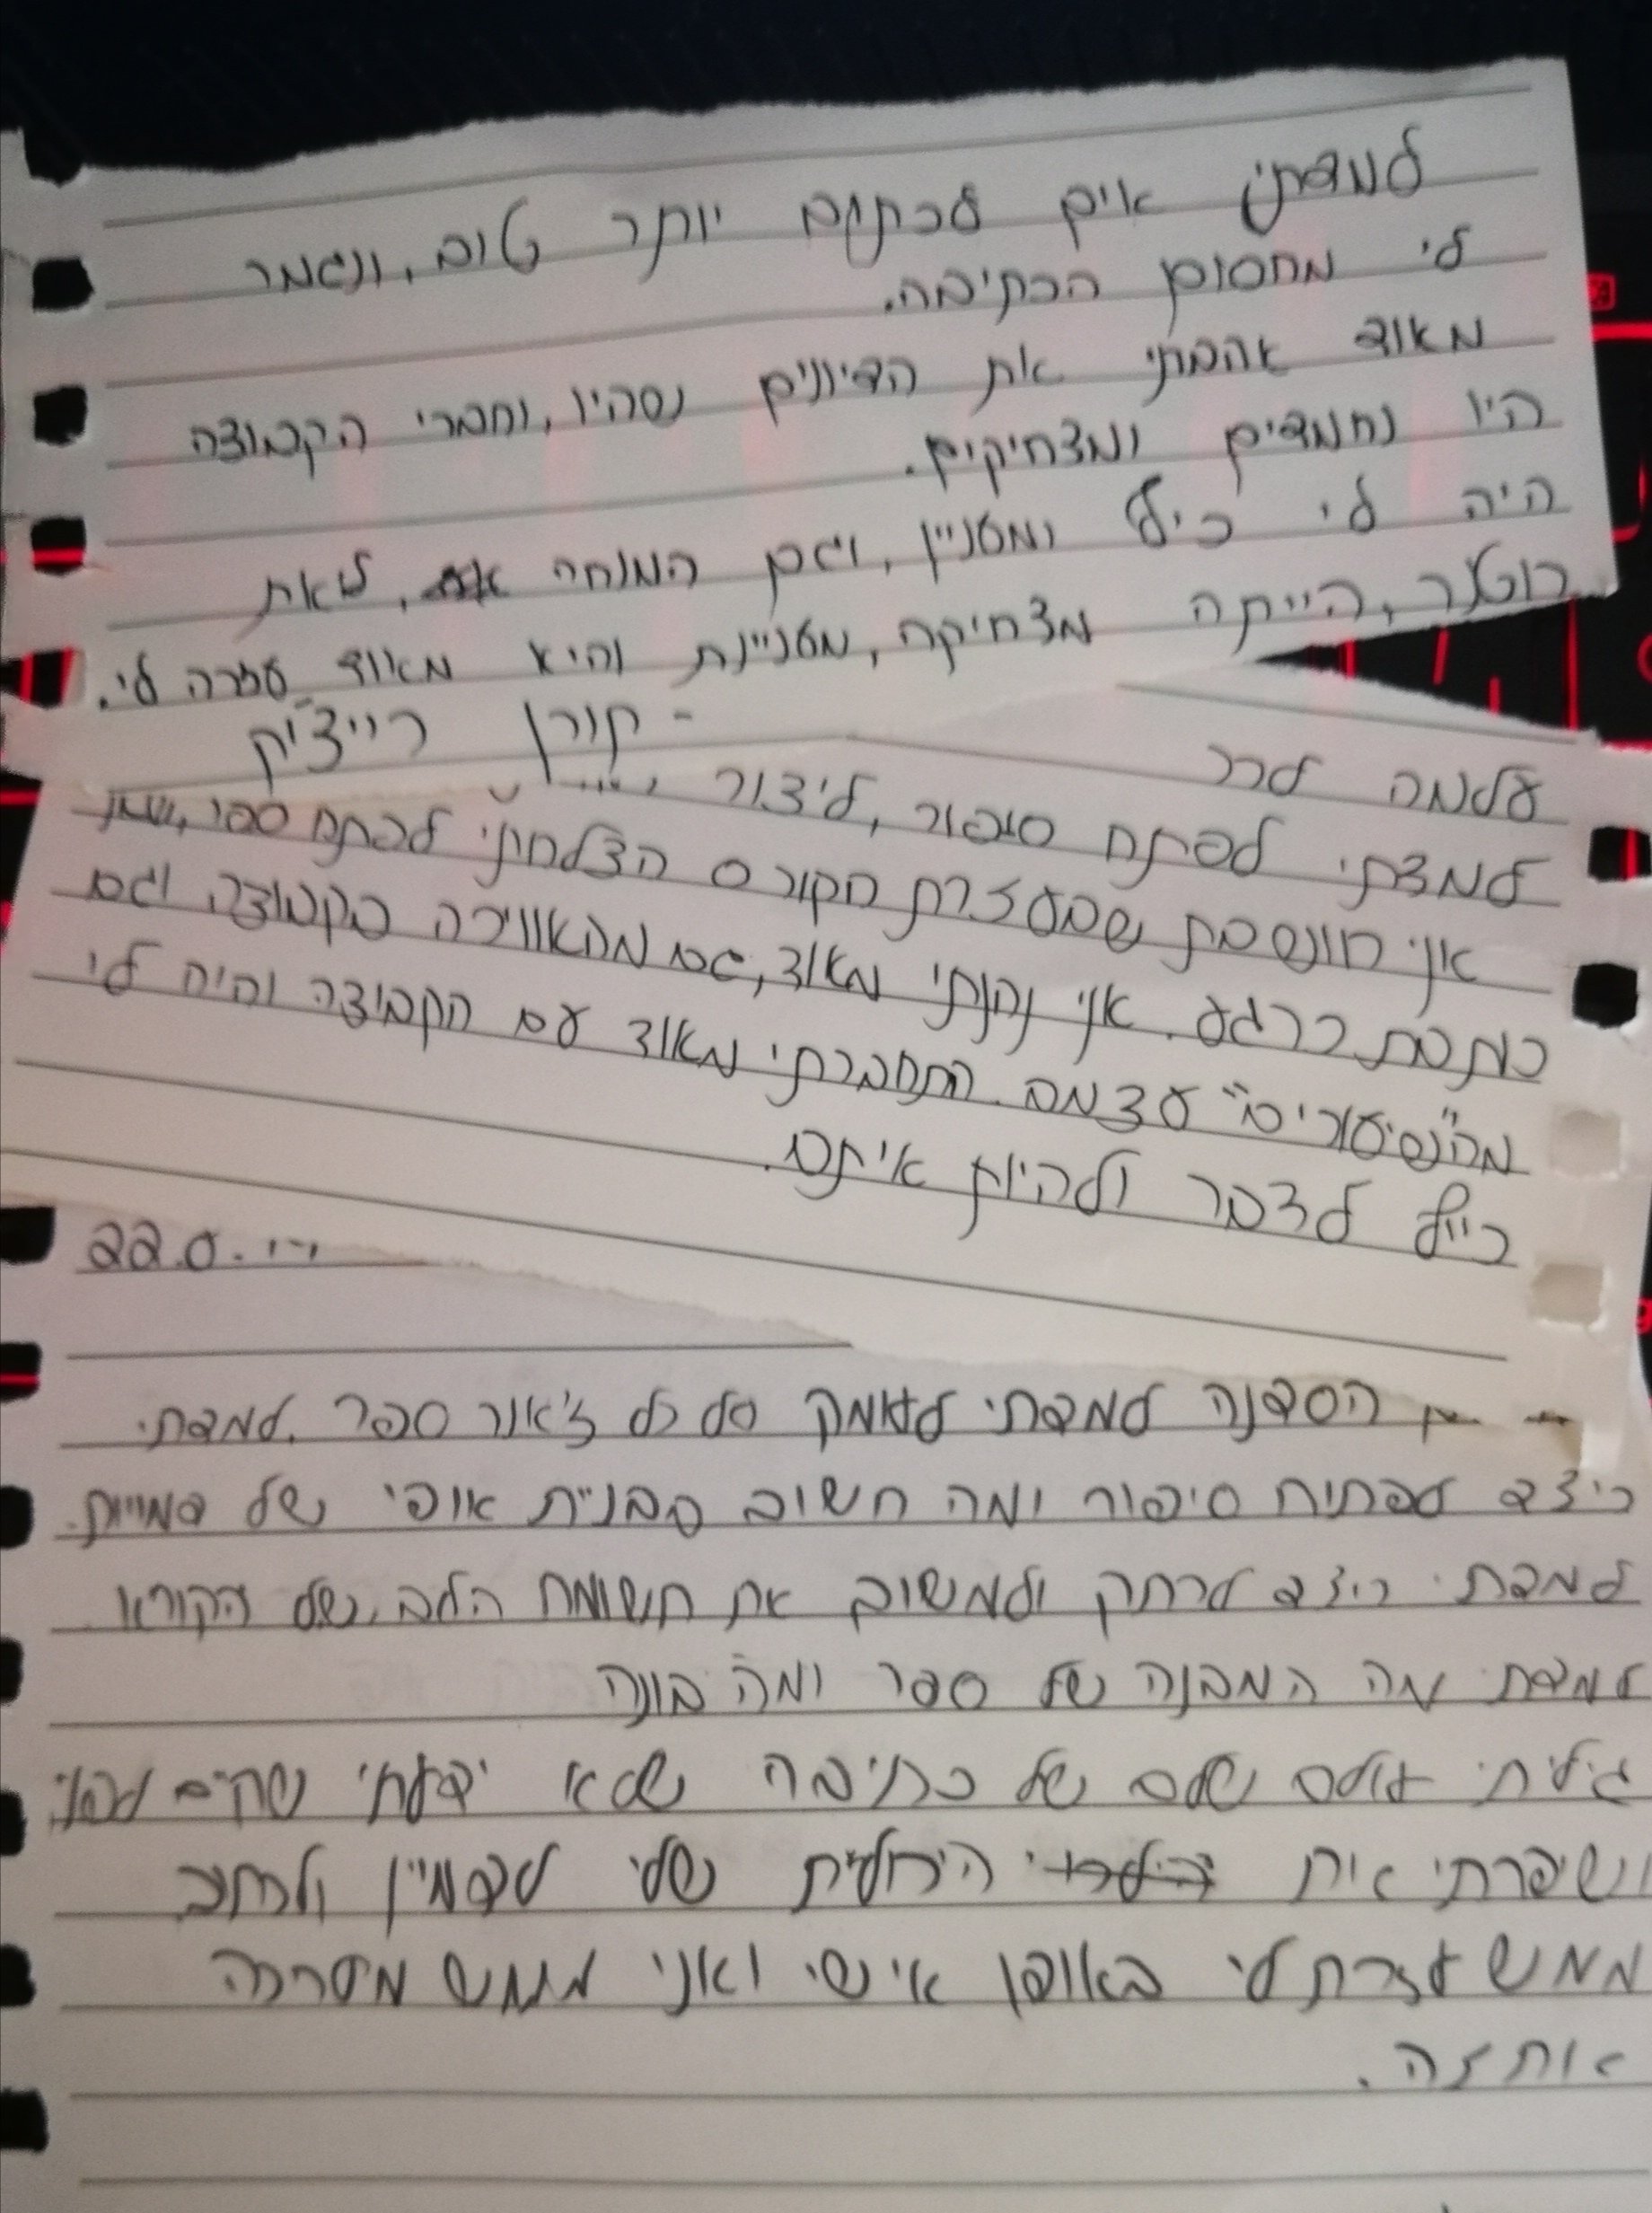 למדתי איך לכתוב יותר טוב, ונגמר
לי מחסום הכתיבה.
מאוד אהבתי את הדיונים שהיו, וחברי הקבוצה
היו נחמדים ומצחיקים.
היה לי כיף ומעניין, וגם המנחה, לאת
רוטלר, הייתה מצחיקה, מעניינת והיא מאוד עזרה לי.
- קורן רייצ'יק
עלמה לרר
למדתי לפתח סיפור, ליצור
אני חושבת שבעזרת הקורס הצלחתי לכתוב ספר, שאני
כותבת כרגע. אני נהנתי מאוד, גם מהאווירה בקבוצה וגם
מה"שיעורים" עצמם. התחברתי מאוד עם הקבוצה והיה לי
כייף לדבר ולהיות איתם.
הסדנה למדתי לעומק על כל ז'אנר ספר. למדתי
כיצד לפתוח סיפור ומה חשוב בבניית אופי של דמויות.
למדתי כיצד לרתק ולמשוך את תשומת הלב של הקורא
למדתי מה המבנה של ספר ומה בונה
גיליתי עולם שלם של כתיבה שלא ידעתי שקיים לפני
ושיפרתי את היכולת שלי לדמיין ולכתוב
ממש עזרת לי באופן אישי ואני ממש מעריכה
את זה.